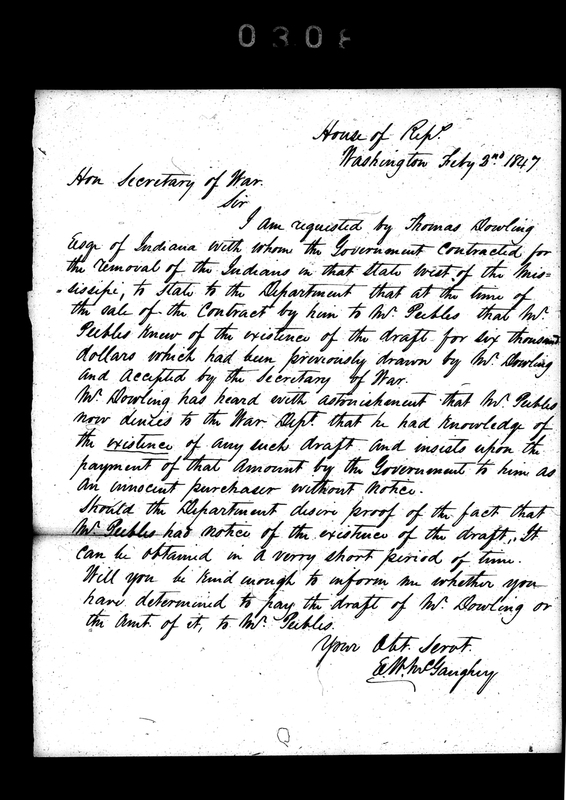 0308
House of Reps.
Washington Feby 3rd 1847
Hon Secretary of War.
Sir
I am requisted by Thomas Dowling
Esqr of Indiana with whom the Government contracted for
the removal of the Indians in that State west of the Mis=
=sissipi, to State to the Department that at the time of
the sale of the Contract by him to Mr Peebles that Mr
Peebles knew of the existence of the draft for six thousand
dollars which had been previously drawn by Mr Dowling
and accepted by the Secretary of War.
Mr Dowling has heard with astonishement that Mr Peebles
now denies to the War Dept. that he had knowledge of
the existence of any such draft and insists upon the
payment of that amount by the Government to him as
an innocent purchaser without notice.
Should the Department desire proof of the fact that
Mr Peebles had notice of the existence of the draft, It
can be obtained in a verry short period of time.
Will you be kind enough to inform me whether you
have determined to pay the draft of Mr Dowling or
the Amt. of it, to Mr Peebles.
Your Obt. Servt.
E.W. McGaughey